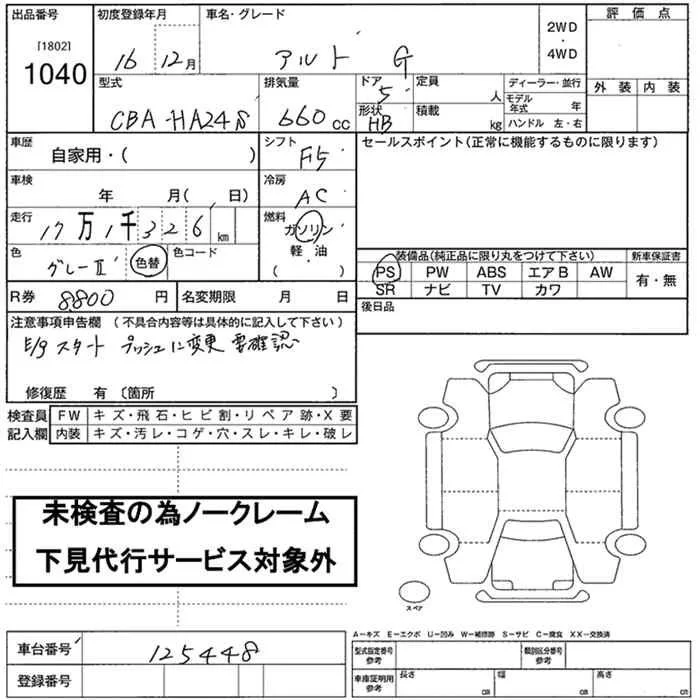 出品番号 初度登録年月 車名・グレード 評価点
[1802] 1040 16 12月 アルト G 2WD・4WD
型式 排気量 ドア 定員 ディーラー・並行 外装 内装
CBA-HA24S 660cc 5 人 モデル年式 年
形状 HB 積載 kg ハンドル 左・右
車歴 自家用・( ) シフト F5 セールスポイント(正常に機能するものに限ります)
車検 年 月( 、日) 冷房 AC
走行 17万1千326km 燃料 ガソリン・軽油・( )
色 グレーⅡ 色替 色コード
装備品(純正品に限り丸をつけて下さい) 新車保証書
PS PW ABS エアB AW 有・無
SR ナビ TV カワ
R券 8800円 名変期限 月 日 後日品
注意事項申告欄 (不具合内容等は具体的に記入して下さい)
E/g スタート プッシュに変更 要確認
修復歴 有 〔箇所 〕
検査員記入欄 FW キズ・飛石・ヒビ割・リペア跡・X要
内装 キズ・汚レ・コゲ・穴・スレ・キレ・破レ
未検査の為ノークレーム
下見代行サービス対象外
スペア
A−キズ E−エクボ U−凹み W−補修跡 S−サビ C−腐食 XX−交換済
車台番号 125448 型式指定番号 参考 類別区分番号 参考
登録番号 車庫証明用 参考 長さ cm 幅 cm 高さ cm